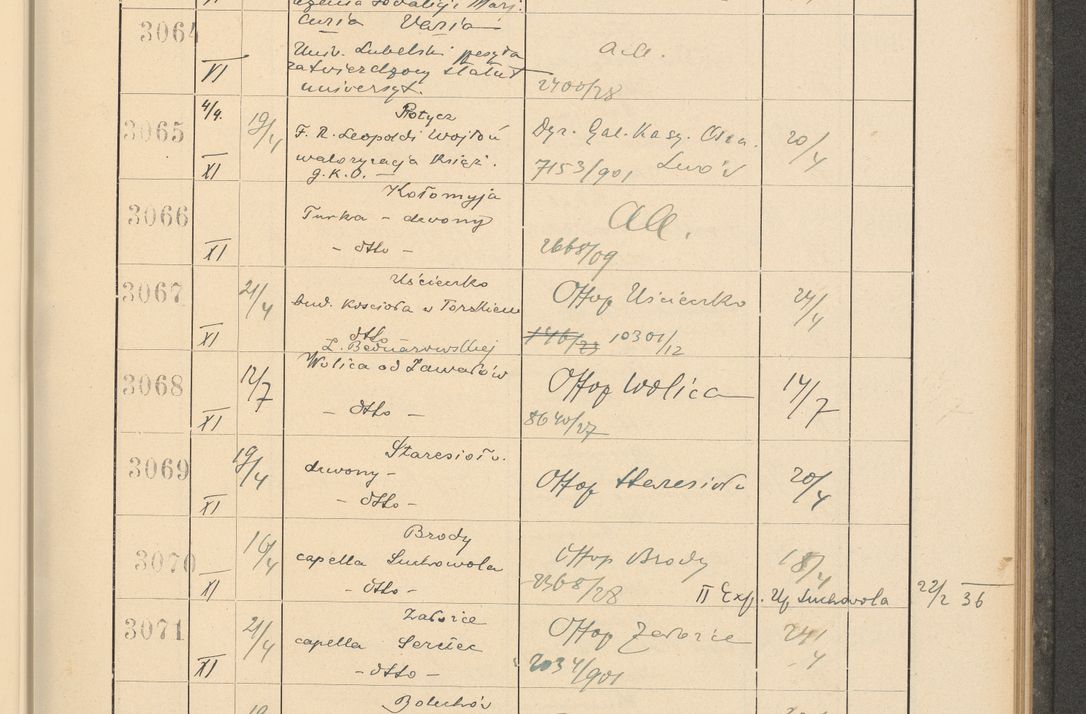 curia Varia
3064 Univ. Lubelski a.a.
VI zatwierdzony statut 2400/28
uniwersyt.
4/4. Rotycz
3065 19/4 F. R. Leopoldi Dyr. Gal. Kasy. 20/4
waloryzacja Książ. 7153/901 Lwów
XI g.k.o. —
Kołomyja
3066 Turka - dzwony aa.
XI - dtto - 2668/09
Uścieczko
3067 21/4 bud. Kościoła w Torskiem Offop Uścieczko 24/4
XI dtto 146/23 10301/12
Wolica od Zawałów
3068 12/7 Offop Wolica 14/7
XI - dtto - 8640/27
Staresioło.
3069 19/4 dzwony - Offop Staresioło 20/4
XI - dtto -
Brody
3070 16/4 capella Suchowola Offop Brody 18/4
XI - dtto - 2368/28 II Exp. Up Suchowola 22/2 36
Załoźce
3071 21/4 capella Offop Załoźce 24/4
XI - dtto - 2034/901
Bolechów